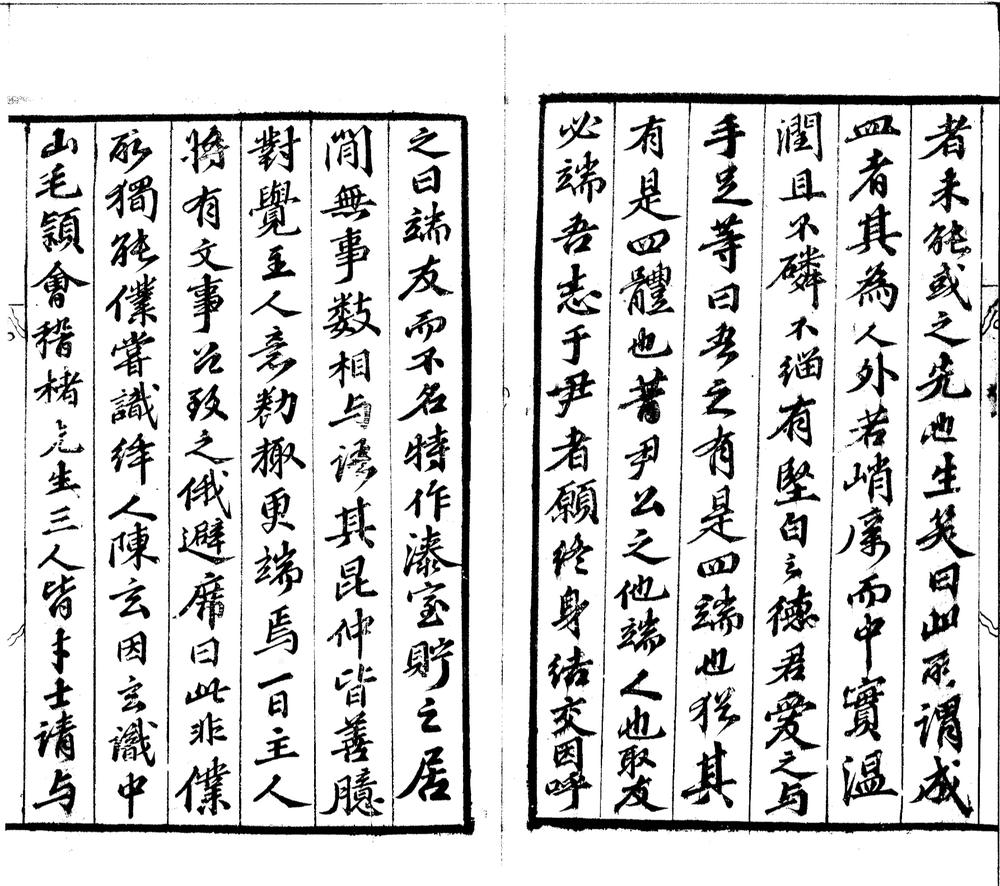 者未能或之先也生笑曰此所謂成
四者其為人外若峭厲而中實溫
潤且不磷不緇有堅白之德君愛之与
手足等曰吾之有是四端也猶其
有是四體也昔尹公之他端人也取友
必端吾志于尹者願終身結交因呼
之曰端友而不名特作漆室貯之居
閒無事数相与語其昆仲皆善臆
對覺主人意勌輒更端焉一日主人
將有文事召致之俄避席曰此非僕
所獨能僕嘗識绛人陳玄因玄識中
山毛穎會稽楮先生三人皆才士请与